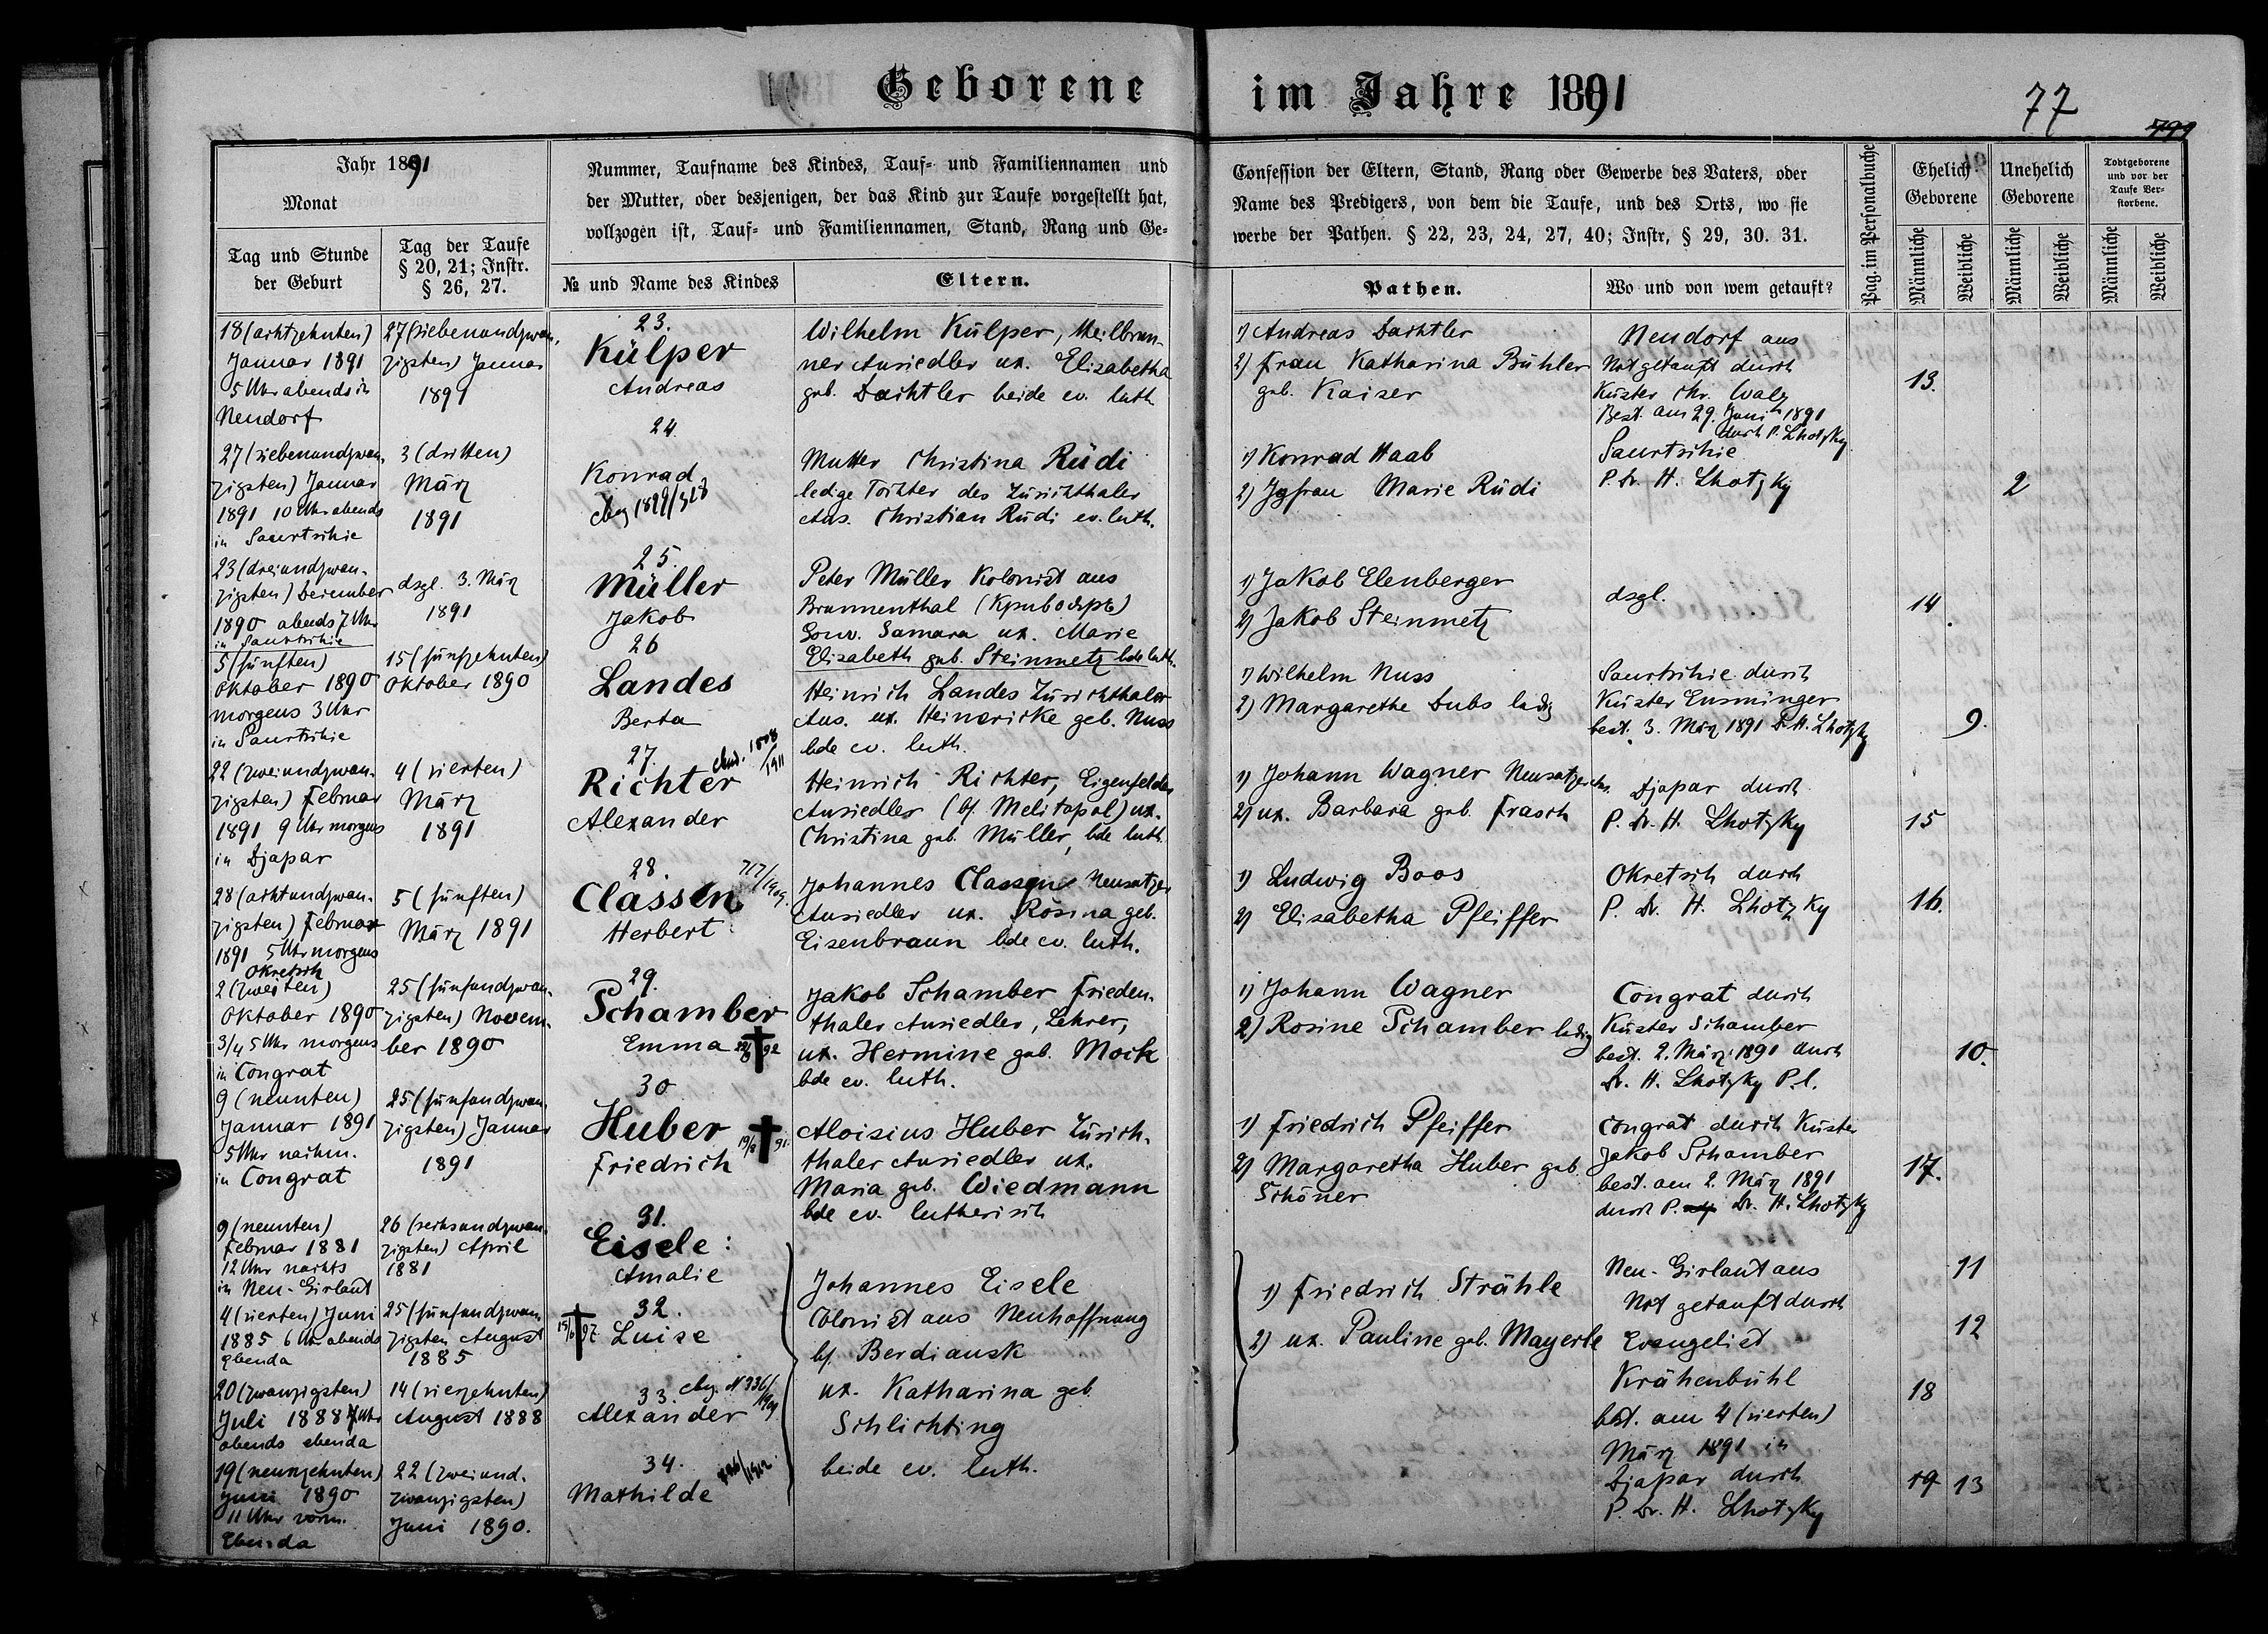 Geborene im Jahre 1891
77
Jahr 1891
Monat
Tag und Stunde
der Geburt
Tag der Taufe
§ 20, 21; Instr.
§ 26, 27.
Nummer, Taufname des Kindes, Tauf- und Familiennamen und
der Mutter, oder desjenigen, der das Kind zur Taufe vorgestellt hat,
vollzogen ist, Tauf- und Familiennamen, Stand, Rang und Ge-
№ und Name des Kindes
Eltern.
Confession der Eltern, Stand, Rang oder Gewerbe des Vaters, oder
Name des Predigers, von dem die Taufe, und des Orts, wo sie
werbe der Pathen. § 22, 23, 24, 27, 40; Instr, § 29, 30. 31.
Pathen.
Wo und von wem getauft?
Pag. im Personalbuche
Ehelich
Geborene
Unehelich
Geborene
Todtgeborene
und vor der
Taufe Ver-
storbene.
Männliche
Weibliche
Männliche
Weibliche
Männliche
Weibliche
18 (achtzehnten)
Januar 1891
5 Uhr abends in
Neudorf
27 (siebenundzwan-
zigsten) Januar
1891
23.
Külper
Andreas
Wilhelm Külper, Heilbrun-
ner Ansiedler ux. Elisabetha
geb. Dachtler beide ev. luth.
1) Andreas Dachtler
2) Frau Katharina Bühler
geb. Kaiser
Neudorf aus
Not getauft durch
Küster Chr. Walz
Best. am 29. Juni 1891
durch P. Lhotzky
13.
27 (siebenundzwan-
zigsten) Januar
1891 10 Uhr abends
in Saurtschie
3 (dritten)
März
1891
24.
Konrad
Mutter Christina Rüdi
ledige Tochter des Zürichthaler
Ans. Christian Rüdi ev. luth.
1) Konrad Haab
2) Jgfrau Marie Rüdi
Saurtschie
P. Dr. H. Lhotzky
2
23 (dreiundzwan-
zigsten) December
1890 abends 7 Uhr
in Saurtschie
dsgl. 3. März
1891
25.
Müller
Jakob
Peter Müller Kolonist aus
Brunnenthal
Gouv. Samara ux. Marie
Elisabeth geb. Steinmetz bde luth.
1) Jakob Elenberger
2) Jakob Steinmetz
dsgl.
14.
5 (fünften)
Oktober 1890
morgens 3 Uhr
in Saurtschie
15 (fünfzehnten)
Oktober 1890
26
Landes
Berta
Heinrich Landes Zürichthaler
Ans. ux. Heinericke geb. Nuss
bde ev. luth.
1) Wilhelm Nuss
2) Margarethe Dubs ledig
Saurtschie durch
Küster Ensminger
best. 3. März 1891 Dr. H. Lhotzky
9.
22 (zweiundzwan-
zigsten) Februar
1891 9 Uhr morgens
in Djapar
4 (vierten)
März
1891
27.
Richter
Alexander
Heinrich Richter, Eigenfelder
Ansiedler (bf. Melitopol) ux.
Christina geb. Müller, bde luth.
1) Johann Wagner Neusatzer Ans.
2) ux. Barbara geb. Frasch
Djapar durch
P. Dr. H. Lhotzky
15
28 (achtundzwan-
zigsten) Februar
1891 5 Uhr morgens
Okretsch
5 (fünften)
März 1891
28.
717/1909.
Classen
Herbert
Johannes Classen Neusatzer
Ansiedler ux. Rosina geb.
Eisenbraun bde ev. luth.
1) Ludwig Boos
2) Elisabetha Pfeiffer
Okretsch durch
P. Dr. H. Lhotzky
16.
2 (zweiten)
Oktober 1890
3/4 5 Uhr morgens
in Congrat
25 (fünfundzwan-
zigsten) Novem-
ber 1890
29.
Schamber
Emma
Jakob Schamber Frieden-
thaler Ansiedler, Lehrer,
ux. Hermine geb. Mock
bde ev. luth.
1) Johann Wagner
2) Rosine Schamber ledig
Congrat durch
Küster Schamber
best. 2. März 1891 durch
Dr. H. Lhotzky P. l.
10.
9 (neunten)
Januar 1891
5 Uhr nachm.
in Congrat
25 (fünfundzwan-
zigsten) Januar
1891
30
Huber
Friedrich
Aloisius Huber Zürich-
thaler Ansiedler ux.
Maria geb. Wiedmann
bde ev. lutherisch
1) Friedrich Pfeiffer
2) Margaretha Huber geb.
Schöner
Congrat durch Küster
Jakob Schamber
best. am 2. März 1891
durch P. Dr. H. Lhotzky
17.
9 (neunten)
Februar 1881
12 Uhr nachts
in Neu-Girlaut
26 (sechsundzwan-
zigsten) April
1881
31.
Eisele:
Amalie
4 (vierten) Juni
1885 6 Uhr abends
ebenda
25 (fünfundzwan-
zigsten August
1885
32.
Luise
20 (zwanzigsten)
Juli 1888 7 Uhr
abends ebenda
14 (vierzehnten)
August 1888
33.
Alexander
19 (neunzehnten)
Juni 1890
11 Uhr vorm.
Ebenda
22 (zweiund-
zwanzigsten)
Juni 1890.
34.
Mathilde
Johannes Eisele
Colonist aus Neuhoffnung
bf. Berdiansk
ux. Katharina geb.
Schlichting
beide ev. luth.
1) Friedrich Strähle
2) ux. Pauline geb. Mayerle
Neu-Girlaut aus
Not getauft durch
Evangelist
Krähenbühl
best. am 4 (vierten)
März 1891 in
Djapar durch
P. Dr. H. Lhotzky
11
12
18
19 13